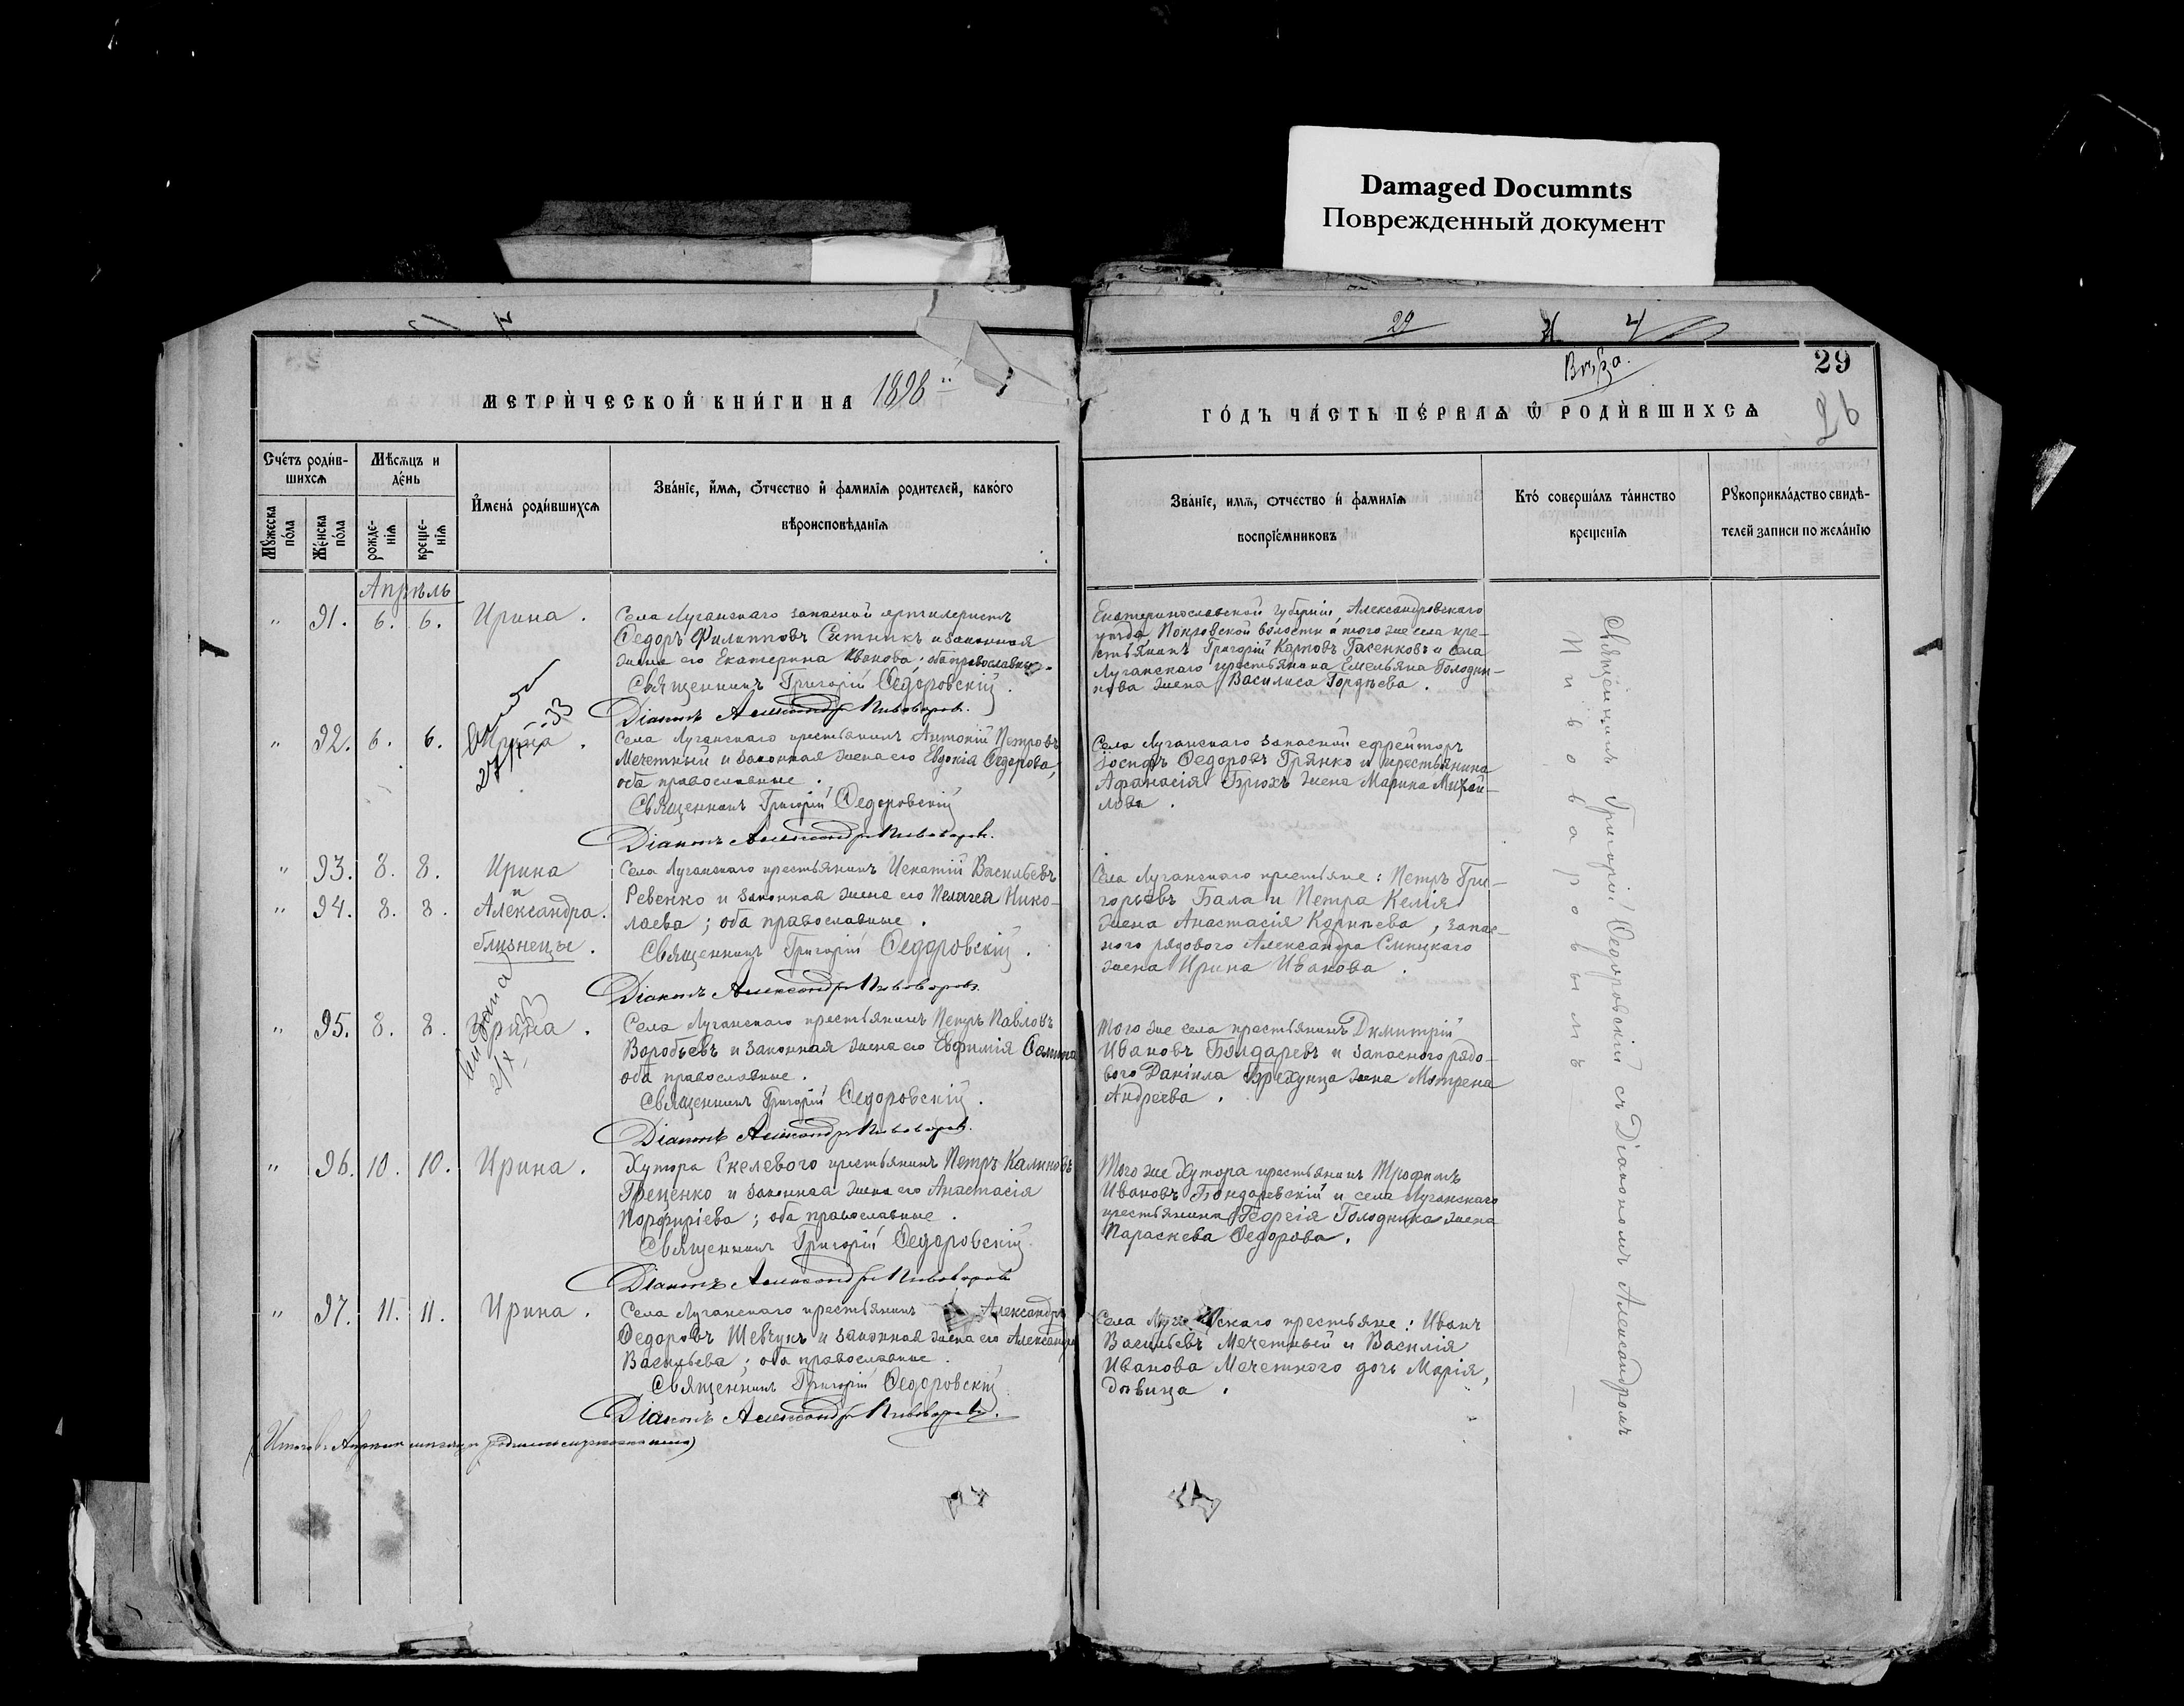 Damaged Documnts
Поврежденный документ
29
29
26
МЕТРИ́ЧЕСКОЙ КНИ́ГИ НА 1898
ГО́ДЪ ЧА́СТЬ ПЕ́РВАѦ Ѿ РОДИ́ВШИХСѦ
Сче́тъ роди́в-
шихсѧ
Мѣсѧцъ и
де́нь
И҆мена̀ роди́вшихсѧ
Зва́нїе, и҆́мѧ, о҆́тчество и҆ фамилїѧ родителей, како́го
вѣроисповѣ́данїѧ
Мꙋ́жеска
по́ла
Же́нска
по́ла
рожде-
нїѧ
креще-
нїѧ
Зва́нїе, имѧ, ѻтчество и҆ фамилїѧ
воспрїе́мниковъ
Кто̀ соверша́лъ та́инство
креще́нїѧ
Рꙋкоприкла́дство свидѣ́-
телей записи по жела́нїю
Апрѣль
" 91. 6. 6. Ирина.
Села Луганскаго запасной артилеристъ
Ѳедоръ Филипповъ Сытникъ и законная
жена его Екатерина Иванова; оба православные.
Священникъ Григорій Ѳедоровскій.
Діаконъ Александръ Пивоваровъ.
Екатеринославской губерніи, Александровскаго
уѣзда, Покровской волости и того же села кре-
стьянинъ Григорій Карповъ Гасенковъ и села
Луганскаго крестьянина Емельяна Голодни-
кова жена Василиса Гордѣева.
" 92. 6. 6. Ирина.
Села Луганскаго крестьянинъ Антоній Петровъ
Мечетный и законная жена его Евдокія Ѳедорова,
оба православные.
Священникъ Григорій Ѳедоровскій
Діаконъ Александръ Пивоваровъ.
Села Луганскаго запасной ефрейторъ
Іосифъ Ѳедоровъ Грянко и крестьянина
Афанасія Брюхъ жена Марина Михай-
лова.
" 93. 8. 8. Ирина
и
" 94. 8. 8. Александра.
близнецы.
Села Луганскаго крестьянинъ Игнатій Васильевъ
Ревенко и законная жена его Пелагея Нико-
лаева; оба православные.
Священникъ Григорій Ѳедоровскій.
Діаконъ Александръ Пивоваровъ.
Села Луганскаго крестьяне: Петръ Гри-
горьевъ Бала и Петра Келія
жена Анастасія Корнѣева, запас-
ного рядового Александра Слицкаго
жена Ирина Иванова.
" 95. 8. 8. Ирина.
Села Луганскаго крестьянинъ Петръ Павловъ
Воробьевъ и законная жена его Евфимія Ѳомина
оба православные.
Священникъ Григорій Ѳедоровскій.
Діаконъ Александръ Пивоваровъ.
Того же села крестьянинъ Димитрій
Ивановъ Бондаревъ и запасного рядо-
вого Даніила Брехунца жена Мотрена
Андреева.
" 96. 10. 10. Ирина.
Хутора Скелевого крестьянинъ Петръ Калиновъ
Греценко и законная жена его Анастасія
Порфиріева; оба православные.
Священникъ Григорій Ѳедоровскій.
Діаконъ Александръ Пивоваровъ
Того же хутора крестьянинъ Трофимъ
Ивановъ Бондаревскій и села Луганскаго
крестьянина Георгія Голодника жена
Параскева Ѳедорова.
" 97. 11. 11. Ирина.
Села Луганскаго крестьянинъ Александръ
Ѳедоровъ Шевчукъ и законная жена его Александра
Васильева; оба православные.
Священникъ Григорій Ѳедоровскій
Діаконъ Александръ Пивоваровъ.
Села Луганскаго крестьяне: Иванъ
Васильевъ Мечетный и Василія
Иванова Мечетного дочь Марія,
дѣвица.
Священникъ Григорій Ѳедоровскій съ Діакономъ Александромъ
Пивоваровымъ